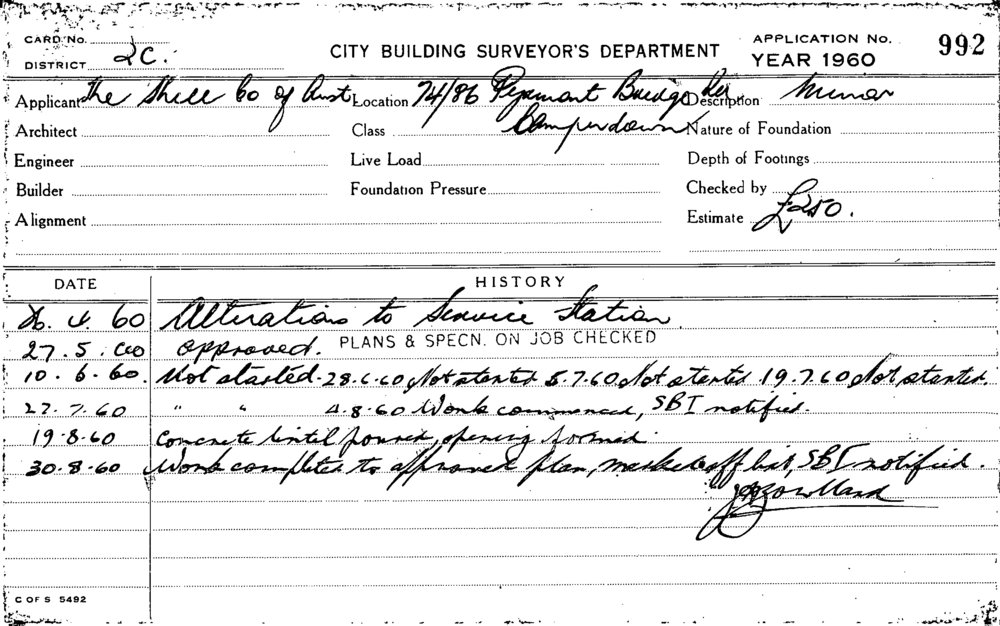 CARD No.
DISTRICT 2C.
CITY BUILDING SURVEYOR'S DEPARTMENT
APPLICATION No. 992
YEAR 1960
Applicant The Shell Co of Aust Location 74/86 Pyrmont Bridge Rd Description Minor
Architect Class Camperdown Nature of Foundation
Engineer Live Load Depth of Footings
Builder Foundation Pressure Checked by
Alignment Estimate £250.
DATE HISTORY
4. 60 Alterations to Service Station
27. 5. 60 approved. PLANS & SPECN. ON JOB CHECKED
10. 6. 60. Not started. 28.6.60 Not started 5.7.60 Not started 19.7.60 Not started.
27. 7. 60 " " 4.8.60 Work commenced, SBI notified.
19.8.60 Concrete lintel poured, opening formed.
30.8.60 Work completed to approved plan, marked off list, SBI notified.
C OF S 5492